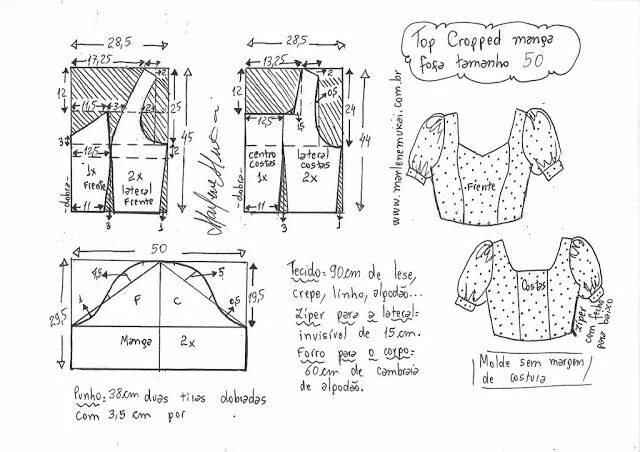 Top Cropped manga
fofa tamanho 50
28,5
17,25
2
12
11,5
3
2
25
45
3
12,5
2
1x
Frente
2x
lateral
Frente
-dobra-
11
3
1
28,5
13,25
2
12
0,5
1,5
12,5
24
44
centro
costas
1x
lateral
costas
2x
-dobra-
11
3
1
www.marlenemukai.com.br
Frente
50
4,5
5
1
0,5
F
C
29,5
19,5
Manga 2x
Tecido= 90cm de lese,
crepe, linho, algodão...
Ziper para a lateral=
invisível de 15cm.
Forro para o corpo=
60cm de cambraia
de algodão.
Costas
Ziper
com fecho
para
baixo
Molde sem margem
de costura
Punho= 38cm duas tiras dobradas
com 3,5 cm por